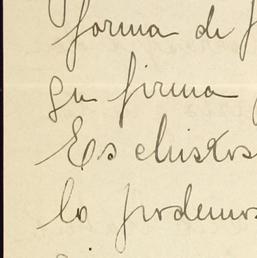 forma de
su firma
Es chistos
lo podemos